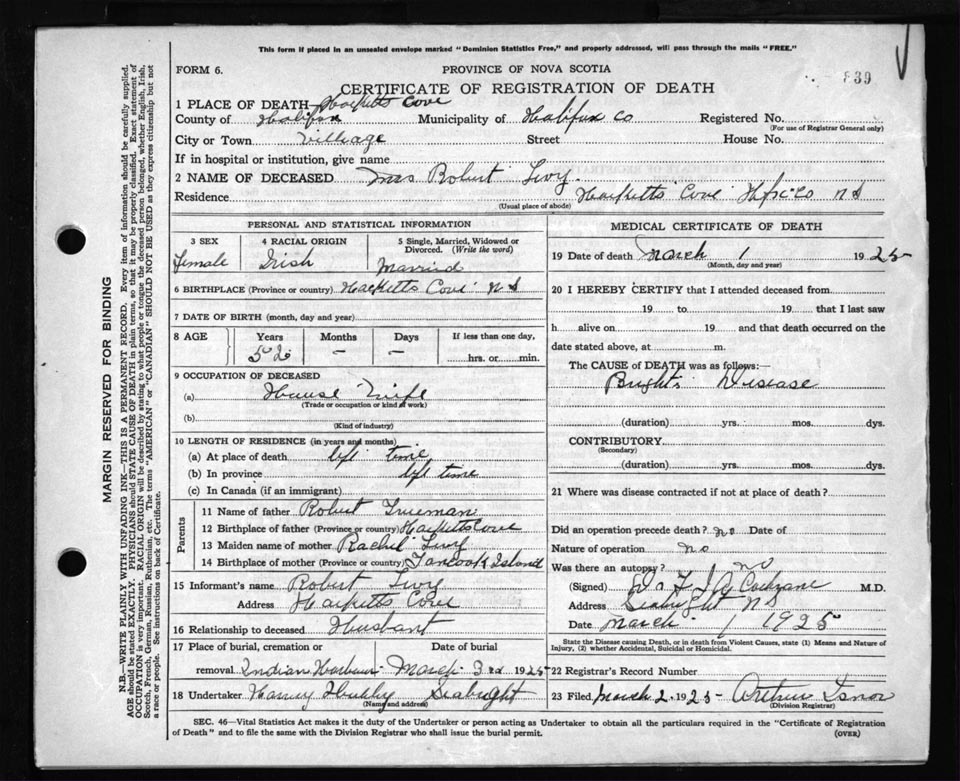 This form if placed in an unsealed envelope marked "Dominion Statistics Free," and properly addressed, will pass through the mails "FREE."
FORM 6.
PROVINCE OF NOVA SCOTIA
839
CERTIFICATE OF REGISTRATION OF DEATH
1 PLACE OF DEATH Hacketts Cove
County of Halifax Municipality of Halifax Co Registered No.
(For use of Registrar General only)
City or Town Village Street House No.
If in hospital or institution, give name
2 NAME OF DECEASED Mrs Robert Levy.
Residence Hacketts Cove Hfx Co N S
(Usual place of abode)
PERSONAL AND STATISTICAL INFORMATION
3 SEX 4 RACIAL ORIGIN 5 Single, Married, Widowed or Divorced. (Write the word)
Female Irish Married
6 BIRTHPLACE (Province or country) Hacketts Cove N S
7 DATE OF BIRTH (month, day and year)
8 AGE Years Months Days If less than one day,
52 – – hrs. or min.
9 OCCUPATION OF DECEASED
(a) House Wife
(Trade or occupation or kind of work)
(b)
(Kind of industry)
10 LENGTH OF RESIDENCE (in years and months)
(a) At place of death life time
(b) In province life time
(c) In Canada (if an immigrant)
Parents
11 Name of father Robert Trueman
12 Birthplace of father (Province or country) Hacketts Cove
13 Maiden name of mother Rachel Levy
14 Birthplace of mother (Province or country) Tancook Island
15 Informant's name Robert Levy
Address Hacketts Cove
16 Relationship to deceased Husbant
17 Place of burial, cremation or Date of burial
removal Indian Harbour March 3rd 1925
18 Undertaker Harry Hubley Seabright
(Name and address)
MEDICAL CERTIFICATE OF DEATH
19 Date of death March 1 1925
(Month, day and year)
20 I HEREBY CERTIFY that I attended deceased from
19 to 19 that I last saw
h alive on 19 and that death occurred on the
date stated above, at m.
The CAUSE of DEATH was as follows:—
Brights Disease
(duration) yrs. mos. dys.
CONTRIBUTORY
(Secondary)
(duration) yrs. mos. dys.
21 Where was disease contracted if not at place of death?
Did an operation precede death? no Date of
Nature of operation no
Was there an autopsy? no
(Signed) Cochrane M.D.
Address Seabright N S
Date March 1 1925
State the Disease causing Death, or in death from Violent Causes, state (1) Means and Nature of Injury, (2) whether Accidental, Suicidal or Homicidal.
22 Registrar's Record Number
23 Filed March 2 1925 Arthur Isnor
(Division Registrar)
SEC. 46—Vital Statistics Act makes it the duty of the Undertaker or person acting as Undertaker to obtain all the particulars required in the "Certificate of Registration
of Death" and to file the same with the Division Registrar who shall issue the burial permit.
(OVER)
MARGIN RESERVED FOR BINDING
N.B.—WRITE PLAINLY WITH UNFADING INK—THIS IS A PERMANENT RECORD. Every item of information should be carefully supplied.
AGE should be stated EXACTLY. PHYSICIANS should STATE CAUSE OF DEATH in plain terms, so that it may be properly classified. Exact statement of
OCCUPATION is very important. RACIAL ORIGIN will be described by stating to what people or tongue the deceased person belonged, whether English, Irish,
Scotch, French, German, Russian, Ruthenian, etc. The terms "AMERICAN" or "CANADIAN" SHOULD NOT BE USED as they express citizenship but not
a race or people. See instructions on back of Certificate.